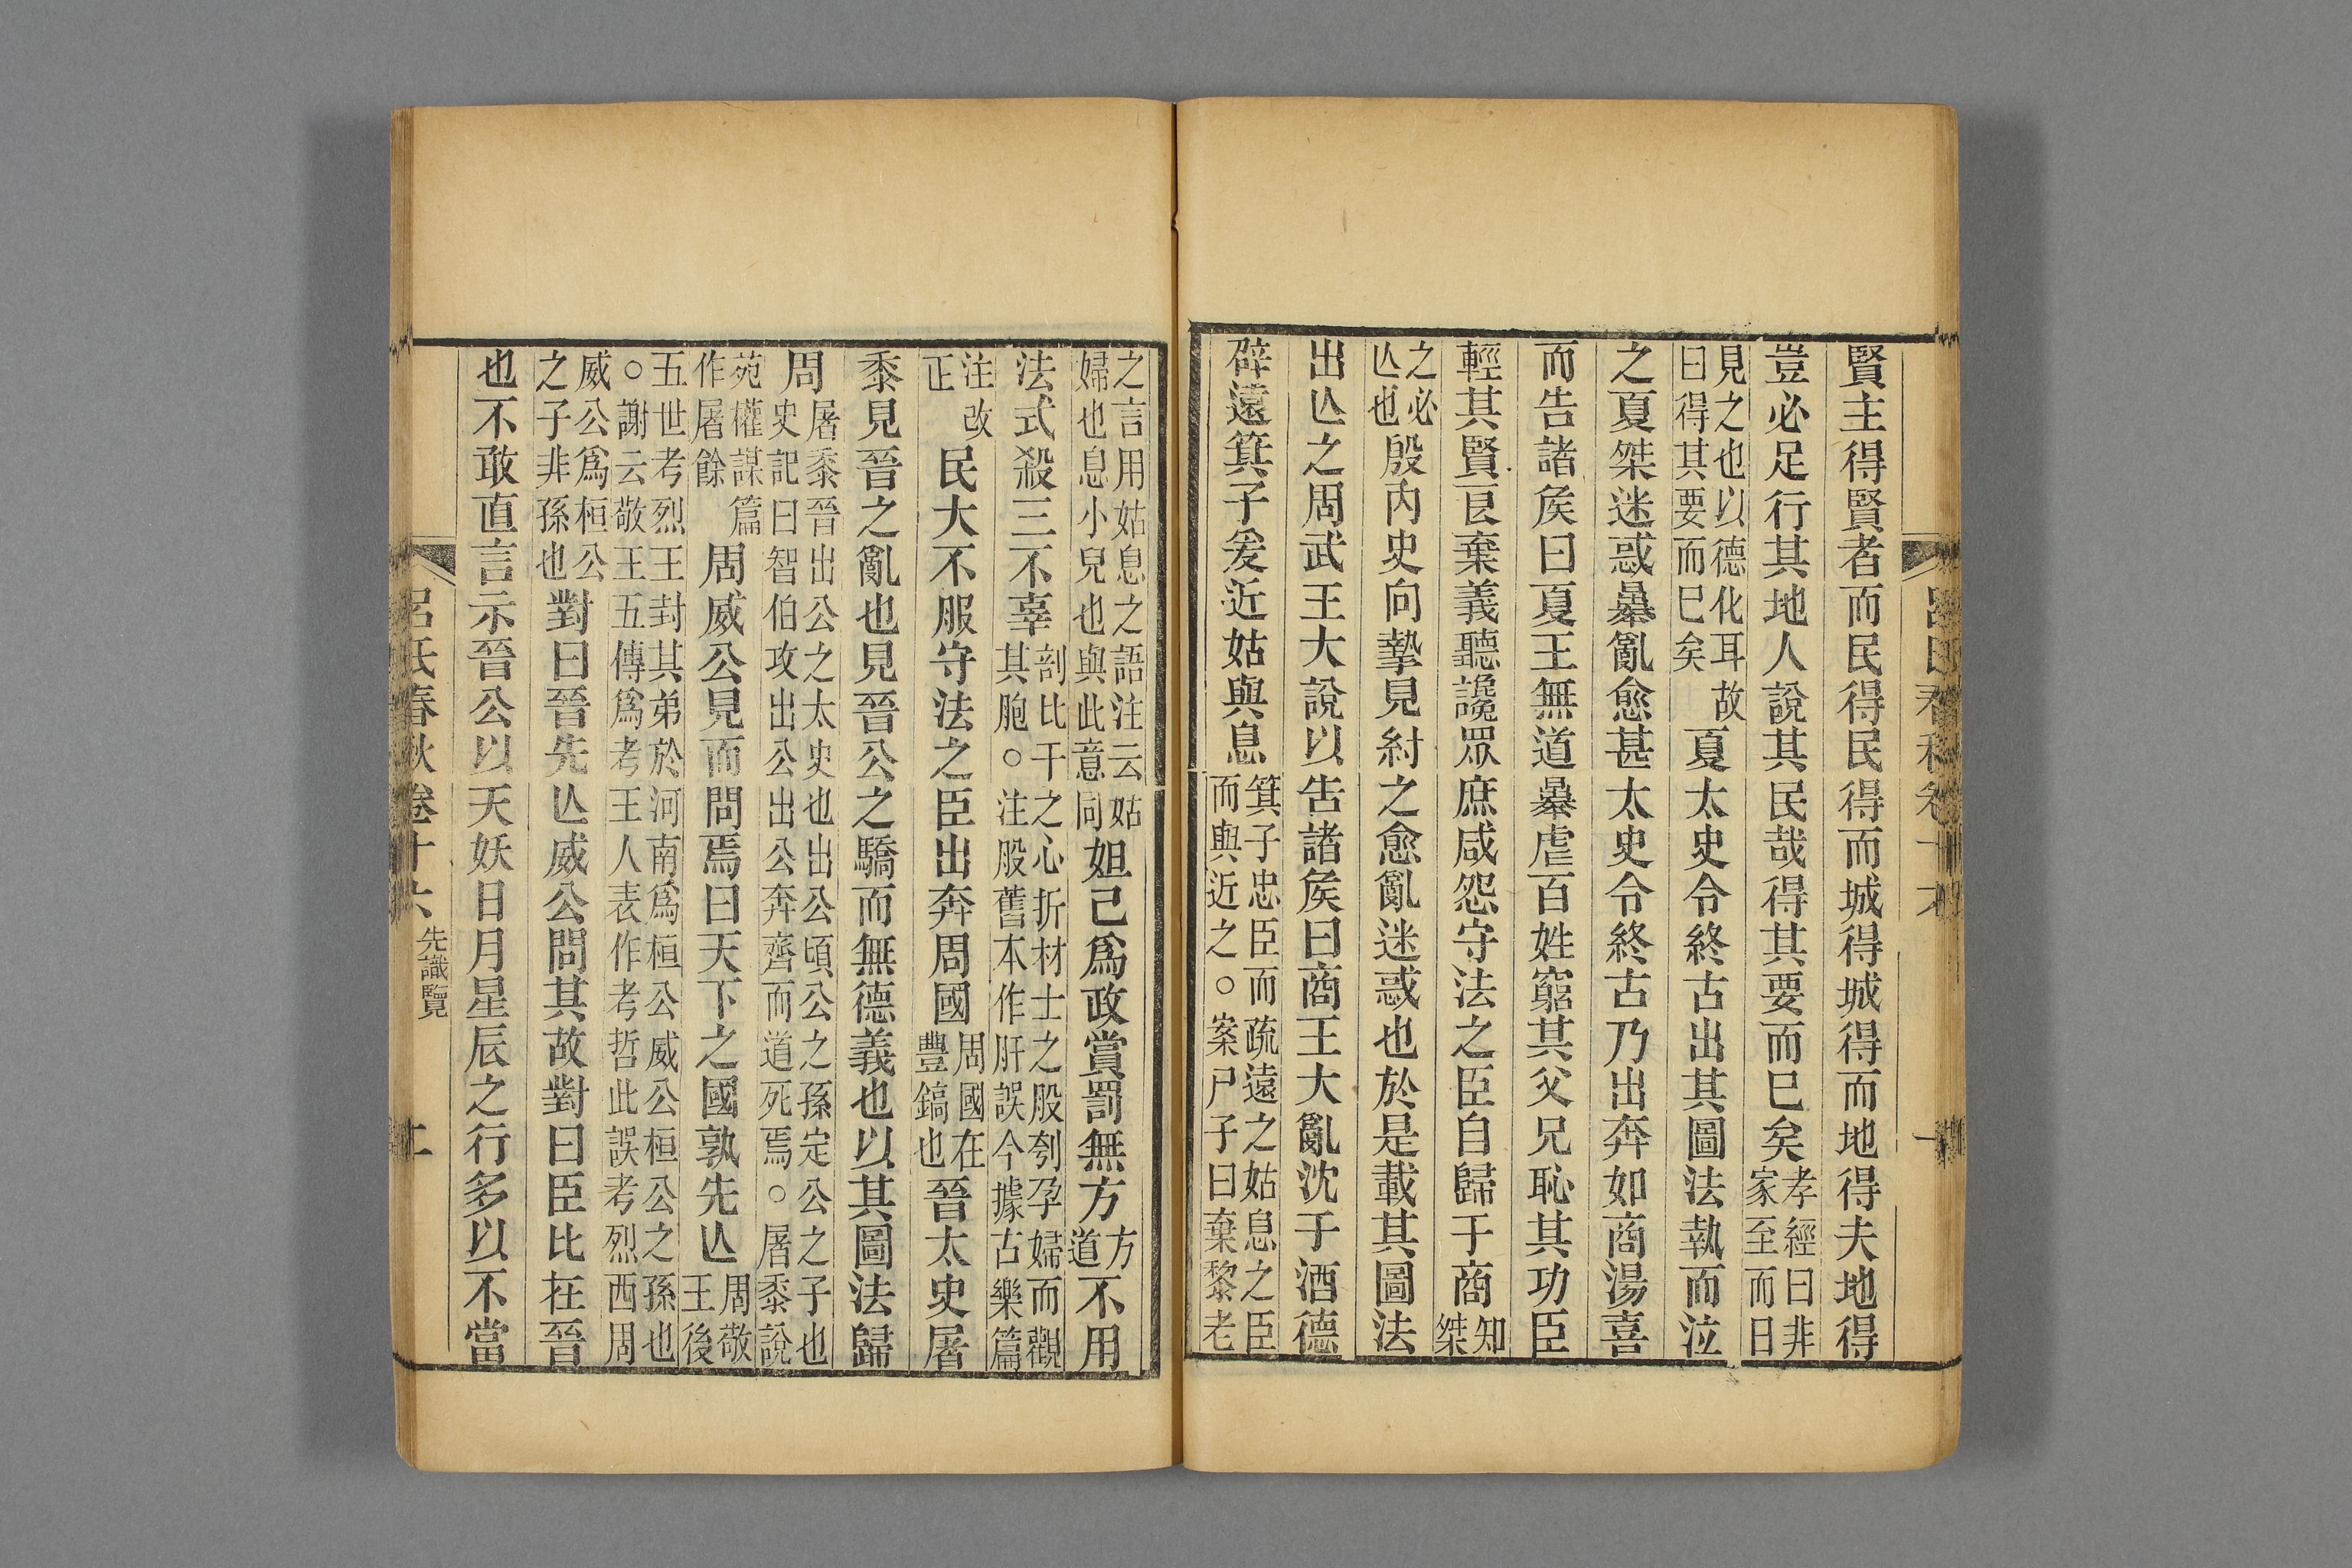 賢主得賢者而民得民得而城得城得而地得夫地得
豈必足行其地人說其民哉得其要而巳矣孝經曰非家至而日
見之也以德化耳故曰得其要而巳矣夏太史令終古出其圖法執而泣
之夏桀迷惑㬥亂愈甚太史令終古乃出奔如商湯喜
而告諸矦曰夏王無道㬥虐百姓窮其父兄恥其功臣
輕其賢良棄義聽讒眾庶咸怨守法之臣自歸于商知桀
之必亾也殷內史向摯見紂之愈亂迷惑也於是載其圖法
出亾之周武王大說以告諸矦曰商王大亂沈于酒德
辟遠箕子爰近姑與息箕子忠臣而疏遠之姑息之臣而與近之○案尸子曰棄黎老
之言用姑息之語注云姑婦也息小兒也與此意同妲己爲政賞罰無方方道不用
法式殺三不辜剖比干之心折材士之股刳孕婦而觀其胞○注股舊本作肝誤今據古樂篇
注改正民大不服守法之臣出奔周國周國在豐鎬也晉太史屠
黍見晉之亂也見晉公之驕而無德義也以其圖法歸
周屠黍晉出公之太史也出公頃公之孫定公之子也史記曰智伯攻出公出公奔齊而道死焉○屠黍說
苑權謀篇作屠餘周威公見而問焉曰天下之國孰先亾周敬王後
五世考烈王封其弟於河南爲桓公威公桓公之孫也○謝云敬王五傳爲考王人表作考哲此誤考烈西周
威公爲桓公之子非孫也對曰晉先亾威公問其故對曰臣比在晉
也不敢直言示晉公以天妖日月星辰之行多以不當
呂氏春秋卷十六 先識覽 二